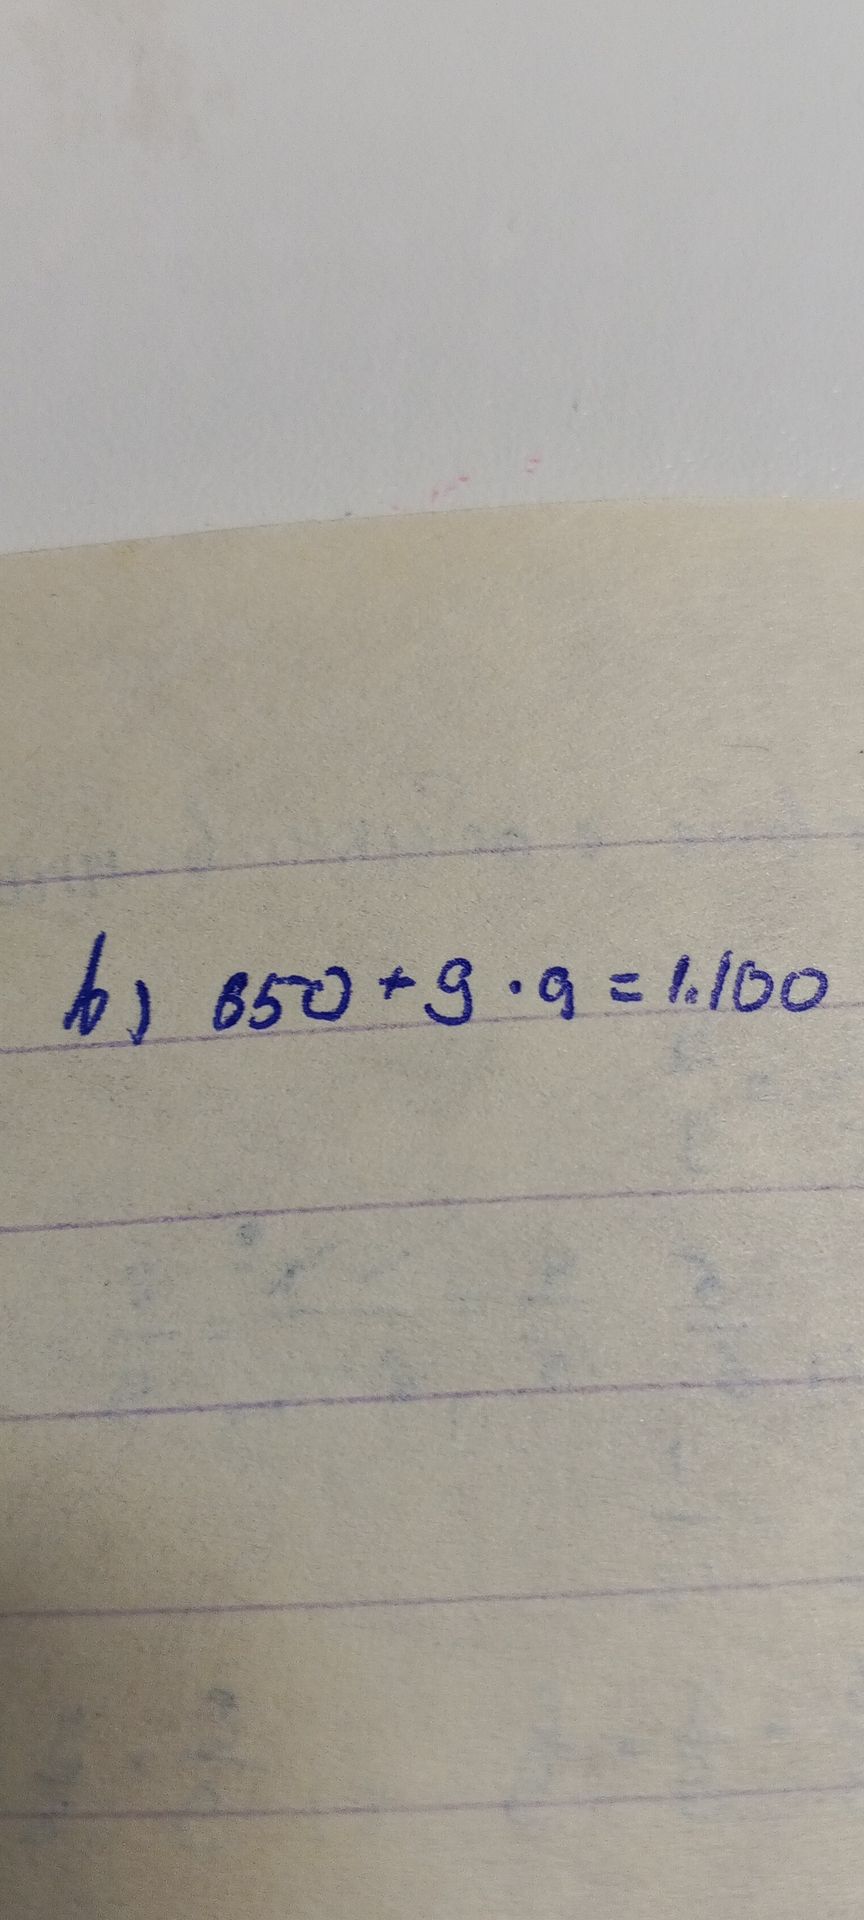 b) 650 + 9 · 9 = 1.100